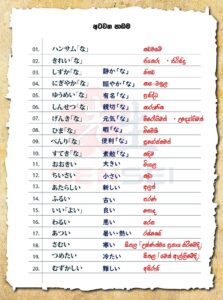 අටවන පාඩම
01. ハンサム「な」 කඩවසම්
02. きれい「な」
03. しずか「な」 静か「な」 නිසල
04. にぎやか「な」 賑やか「な」
05. ゆうめい「な」 有名「な」 ප්‍රසිද්ධ
06. しんせつ「な」 親切「な」 කාරුණික
07. げんき「な」 元気「な」
08. ひま「な」 暇「な」 විවේකී
09. べんり「な」 便利「な」
10. すてき「な」 素敵「な」
11. おおきい 大きい විශාල
12. ちいさい 小さい
13. あたらしい 新しい අලුත්
14. ふるい 古い පරණ
15. いい「よい」 良い හොඳ
16. わるい 悪い නරක
17. あつい 暑い・熱い
18. さむい 寒い
19. つめたい 冷たい
20. むずかしい 難しい අමාරු